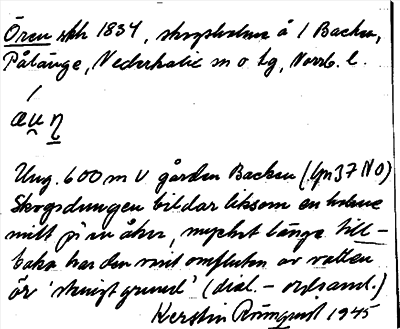 Ören skh 1834, skogsholme å 1 Backen,
Pålänge, Nederkalix sn o tg, Norrb. l.
Ung. 600 m V gården Backen (lpn 37 NO)
Skogsdungen bildar liksom en holme
mitt på en åker, mycket länge till-
baka har den varit omfluten av vatten
ör 'stenigt grund' (dial.-ordsaml.)
Kerstin 1945